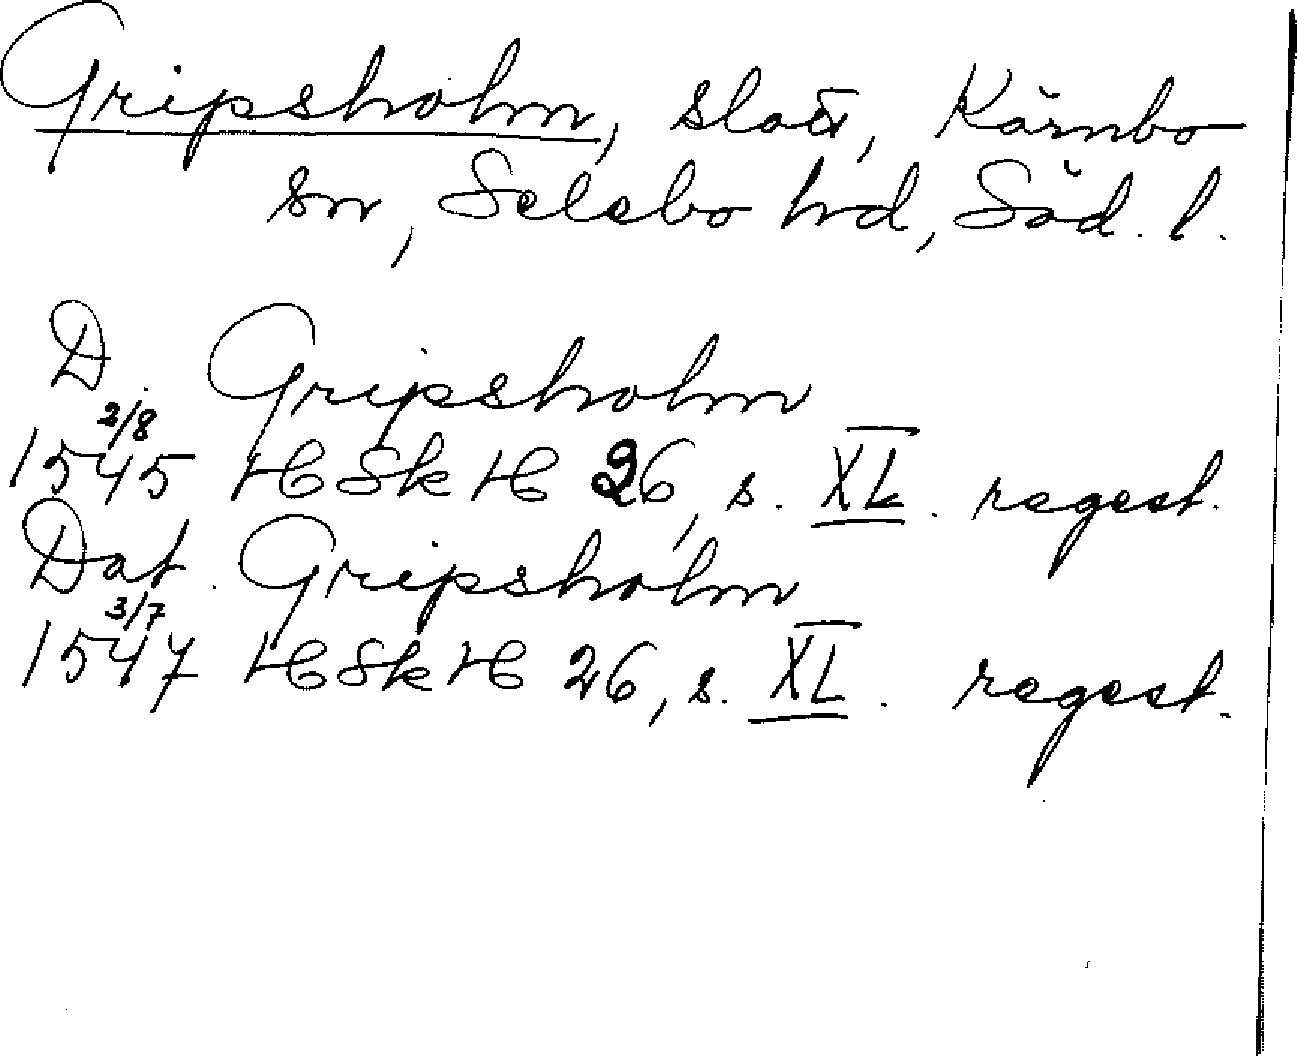 Gripsholm, slott, Kärnbo
sn, Selebo hd, Söd. l.
D. Gripsholm
2/8
1545 HSkH 26, s. XL. regest.
Dat. Gripsholm
3/7
1547 HSkH 26, s. XL. regest.